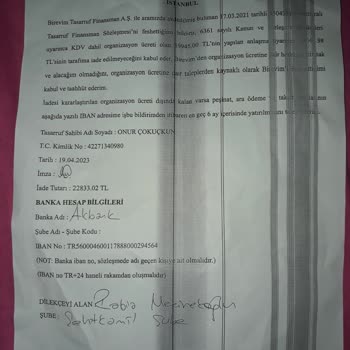 İSTANBUL
Birevim Tasarruf Finansman A.Ş. ile aramızda bulunan 17.03.2021 tarihli
Tasarruf Finansman Sözleşmesi'ni feshettiğimi bildirir, 6361 sayılı Kanun
uyarınca KDV dahil organizasyon ücreti olan TL'nin yapılan anlaşma
TL'sinin tarafıma iade edilmeyeceğini kabul eder, organizasyon ücretine
ve alacağım olmadığını, organizasyon ücretine taleplerden kaynaklı olarak Birevim'i
kabul ve taahhüt ederim.
İadesi kararlaştırılan organizasyon ücreti dışında kalan varsa peşinat, ara ödeme
aşağıda yazılı IBAN adresime işbu bildirimden itibaren en geç 6 ay içerisinde yatırılmasını
Tasarruf Sahibi Adı Soyadı : ONUR ÇOKUÇKUN
T.C. Kimlik No : 42271340980
Tarih : 19.04.2023
İmza :
İade Tutarı : 22833.02 TL
BANKA HESAP BİLGİLERİ
Banka Adı : Akbank
Şube Adı - Şube Kodu :
IBAN No : TR560004600117888000294564
(NOT: Banka iban no, sözleşmede adı geçen kişiye ait olmalıdır.)
(IBAN no TR+24 haneli rakamdan oluşmalıdır)
DİLEKÇEYİ ALAN : Rabia
ŞUBE : Şehitkamil Şube